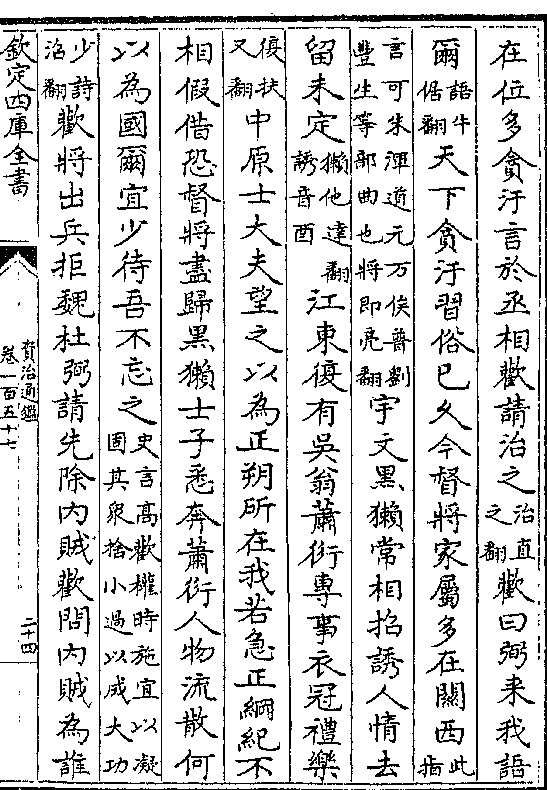 在位多貪汙言於丞相歡請治之治直之翻歡曰弼来我語
爾語牛倨翻天下貪汙習俗已乆今督將家屬多在關西此指
言可朱渾道元万俟普劉豐生等部曲也將即亮翻宇文黑獺常相招誘人情去
留未定獺他達翻誘音酉江東復有吳翁蕭衍專事衣冠禮樂
復扶又翻中原士大夫望之以為正朔所在我若急正綱紀不
相假借恐督將盡歸黑獺士子悉奔蕭衍人物流散何
以為國爾宜少待吾不忘之史言髙歡權時施宜以凝固其衆捨小過以成大功
少詩沼翻歡將出兵拒魏杜弼請先除内賊歡問内賊為誰
欽定四庫全書
資治通鑑
卷一百五十七
二十四